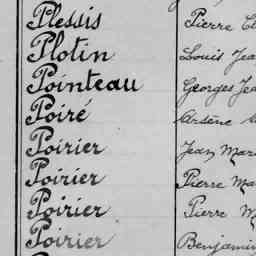 Plessis Pierre
Plotin Louis
Pointeau Georges
Poiré Arsène
Poirier Jean
Poirier Pierre
Poirier Pierre
Poirier Benjamin